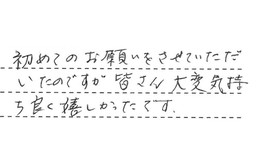 初めてのお願いをさせていただだ
いたのですが皆さん大変気持
ち良く嬉しかったです.